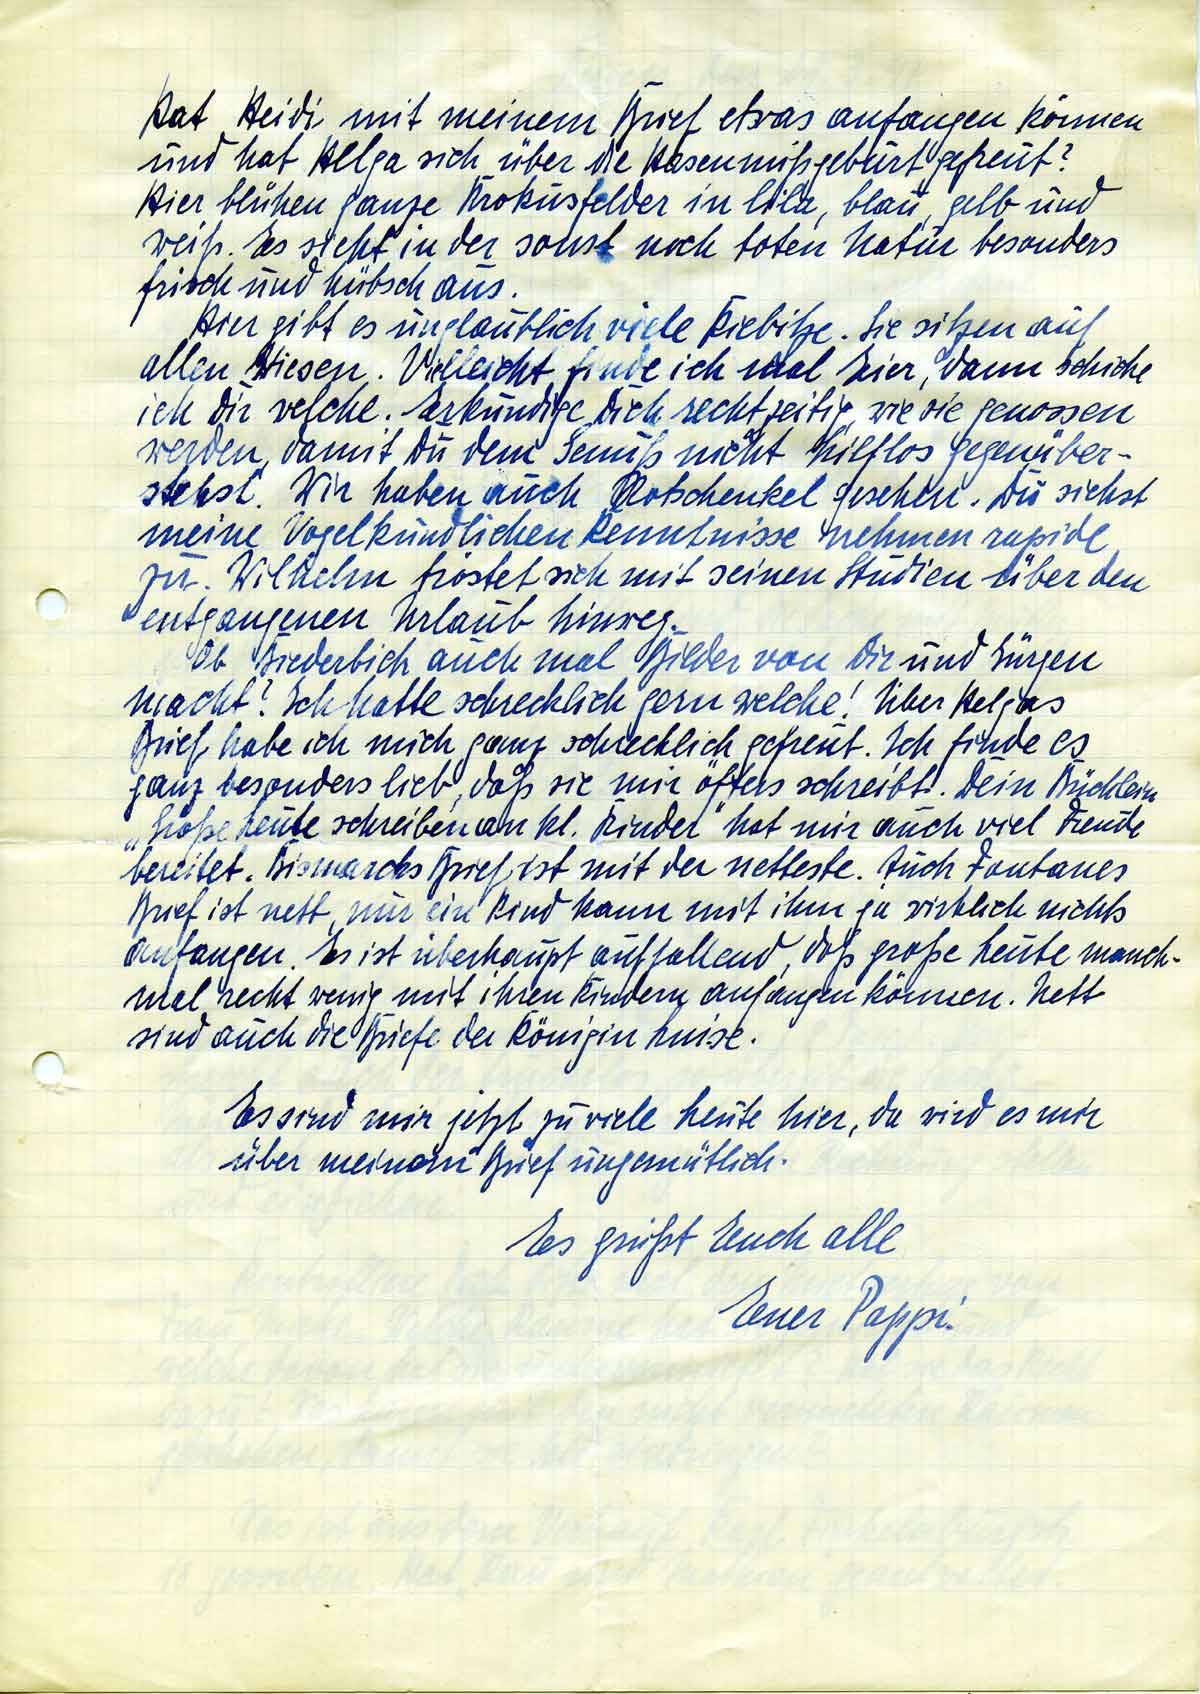 Hat Heidi mit meinem Brief etwas anfangen können
und hat Helga sich über die Hasenmißgeburt gefreut?
Hier blühen ganze Krokusfelder in lila, blau, gelb und
weiß. Es sieht in der sonst noch toten Natur besonders
frisch und hübsch aus.
Hier gibt es unglaublich viele Kiebitze. Sie sitzen auf
allen Wiesen. Vielleicht finde ich mal Eier, dann schicke
ich Dir welche. Erkundige Dich rechtzeitig, wie sie genossen
werden, damit Du dem Genuß nicht hilflos gegenüber-
stehst. Wir haben auch Rotschenkel gesehen. Du siehst
meine Vogelkundlichen Kenntnisse nehmen rapide
zu. Wilhelm tröstet sich mit seinen Studien über den
entgangenen Urlaub hinweg.
Ob Biederbich auch mal Bilder von Dir und Jürgen
macht? Ich hätte schrecklich gern welche! Über Helgas
Brief habe ich mich ganz schrecklich gefreut. Ich finde es
ganz besonders lieb, daß sie mir öfters schreibt. Dein Büchlein
„Große Leute schreiben an kl. Kinder" hat mir auch viel Freude
bereitet. Bismarcks Brief ist mit der netteste. Auch Fontanes
Brief ist nett, nur ein Kind kann mit ihm ja wirklich nichts
anfangen. Es ist überhaupt auffallend, daß große Leute manch-
mal recht wenig mit ihren Kindern anfangen können. Nett
sind auch die Briefe der Königin Luise.
Es sind mir jetzt zu viele Leute hier, da wird es mir
über meinem Brief ungemütlich.
Es grüßt Euch alle
Euer Pappi.